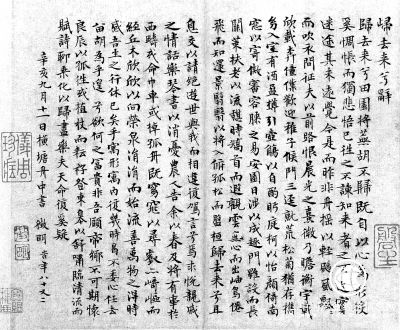 歸去來兮辭
歸去來兮田園將蕪胡不歸既自以心為形役
奚惆悵而獨悲悟已往之不諫知來者之可追實
迷途其未遠覺今是而昨非舟搖搖以輕颺風飄飄
而吹衣問征夫以前路恨晨光之熹微乃瞻衡宇載
欣載奔僮僕歡迎稚子候門三逕就荒松菊猶存攜
幼入室有酒盈樽引壺觴以自酌眄庭柯以怡顏倚南
窗以寄傲審容膝之易安園日涉以成趣門雖設而長
關策扶老以流憩時矯首而遐觀雲無心而出岫鳥倦
飛而知還景翳翳以將入撫孤松而盤桓歸去來兮請
息交以絕遊世與我而相違復駕言兮焉求悅親戚
之情話樂琴書以消憂農人告余以春及將有事於
西疇或命巾車或棹孤舟既窈窕以尋壑亦崎嶇而
經丘木欣欣以向榮泉涓涓而始流善萬物之得時
感吾生之行休已矣乎寓形宇內復幾時曷不委心任去
留胡為乎遑遑兮欲何之富貴非吾願帝鄉不可期懷
良辰以孤往或植杖而耘耔登東皋以舒嘯臨清流而
賦詩聊乘化以歸盡樂夫天命復奚疑
辛亥九月十一日橫塘舟中書 徵明